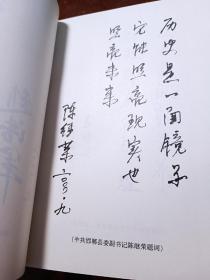 历史是一面镜子
它能照亮现实也
照亮未来
陈继荣 二〇〇三·九
(中共邯郸县委副书记陈继荣题词)